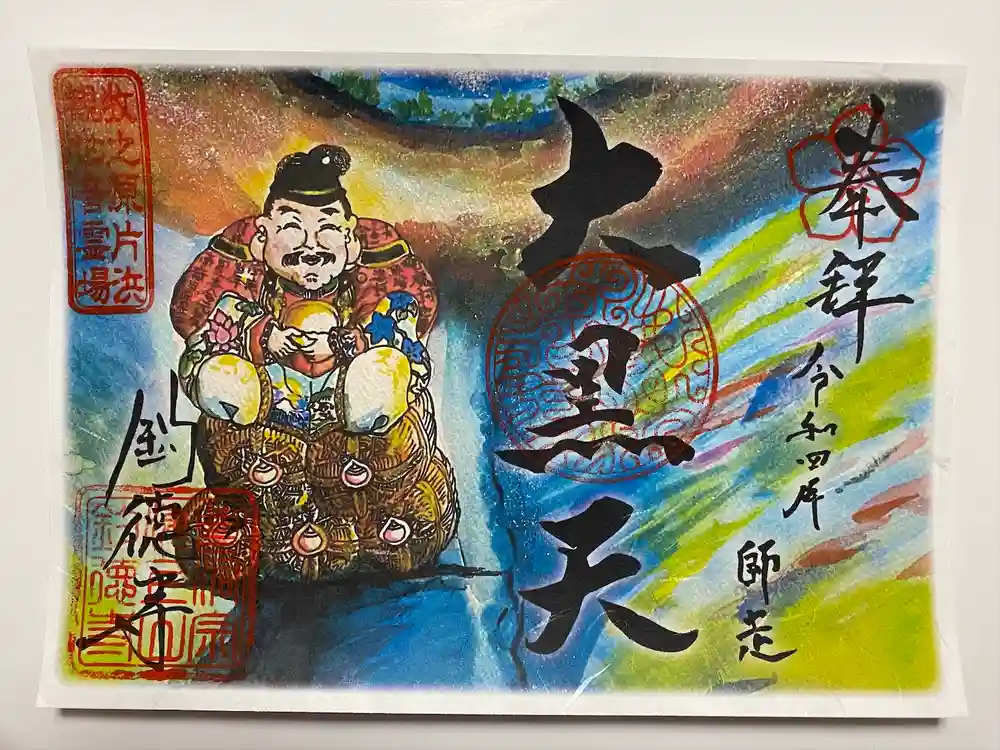 奉拝
令和四年
師走
大黒天
釣徳寺
牧之原片浜
観音霊場